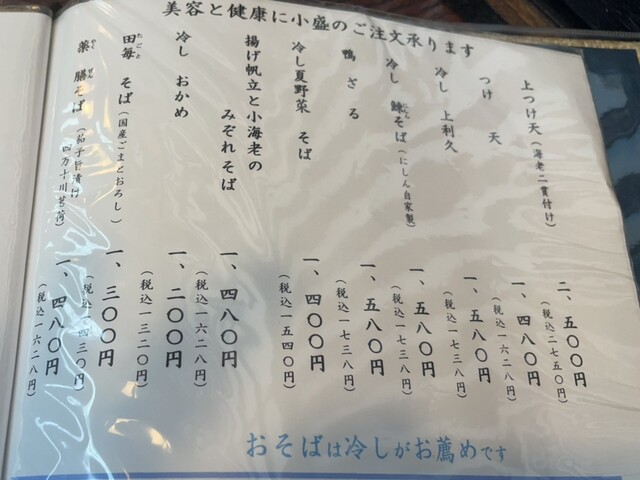 美容と健康に小盛のご注文承ります
上つけ天(海老二貫付け)
二、五〇〇円
(税込二七五〇円)
つけ天
一、四八〇円
(税込一六二八円)
冷し 上利久
一、五八〇円
(税込一七三八円)
冷し 鰊そば(にしん自家製)
にしん
一、五八〇円
(税込一七三八円)
鴨ざる
一、五八〇円
(税込一七三八円)
冷し夏野菜 そば
一、四〇〇円
(税込一五四〇円)
揚げ帆立と小海老の
みぞれそば
一、四八〇円
(税込一六二八円)
冷し おかめ
一、二〇〇円
(税込一三二〇円)
田毎 そば(国産ごまとおろし)
たごと
一、三〇〇円
(税込一四三〇円)
薬膳そば(茄子旨漬け
やくぜん
四万十川茗荷)
一、四八〇円
(税込一六二八円)
おそばは冷しがお薦めです